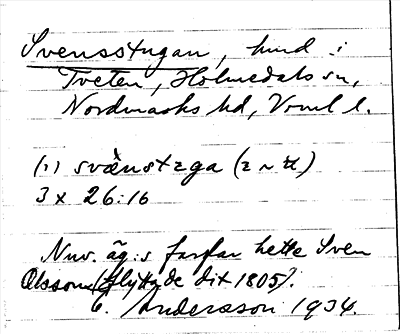 Svensstugan, hmd i
Tveten, Holmedals sn,
Nordmarks hd, Vrml l.
(1) svǽnstʌga
3 x 26:16
Nuv. äg:s farfar hette Sven
Olsson (flyttade dit 1805).
C. Andersson 1934.